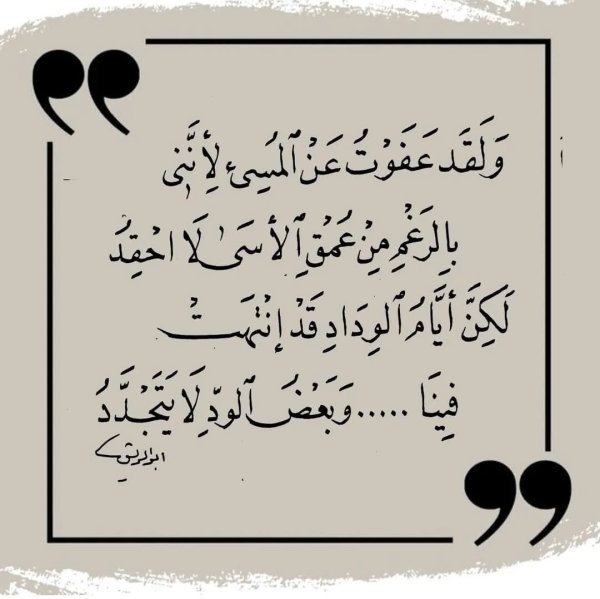 وَلَقَد عَفَوْتُ عَنْ ٱلمُسِئِ لِأَنَّنِى
بِالرَغْمِ مِنْ عُمْقِ الأسَىٰ لَا احْقِدُ
لَكِنَّ أيَّامُ ٱلوِدَادِ قَدْ إنْتَهَتْ
فِينَا .....وَبَعْضُ ٱلودِّ لَا يَتَجَدَّدُ